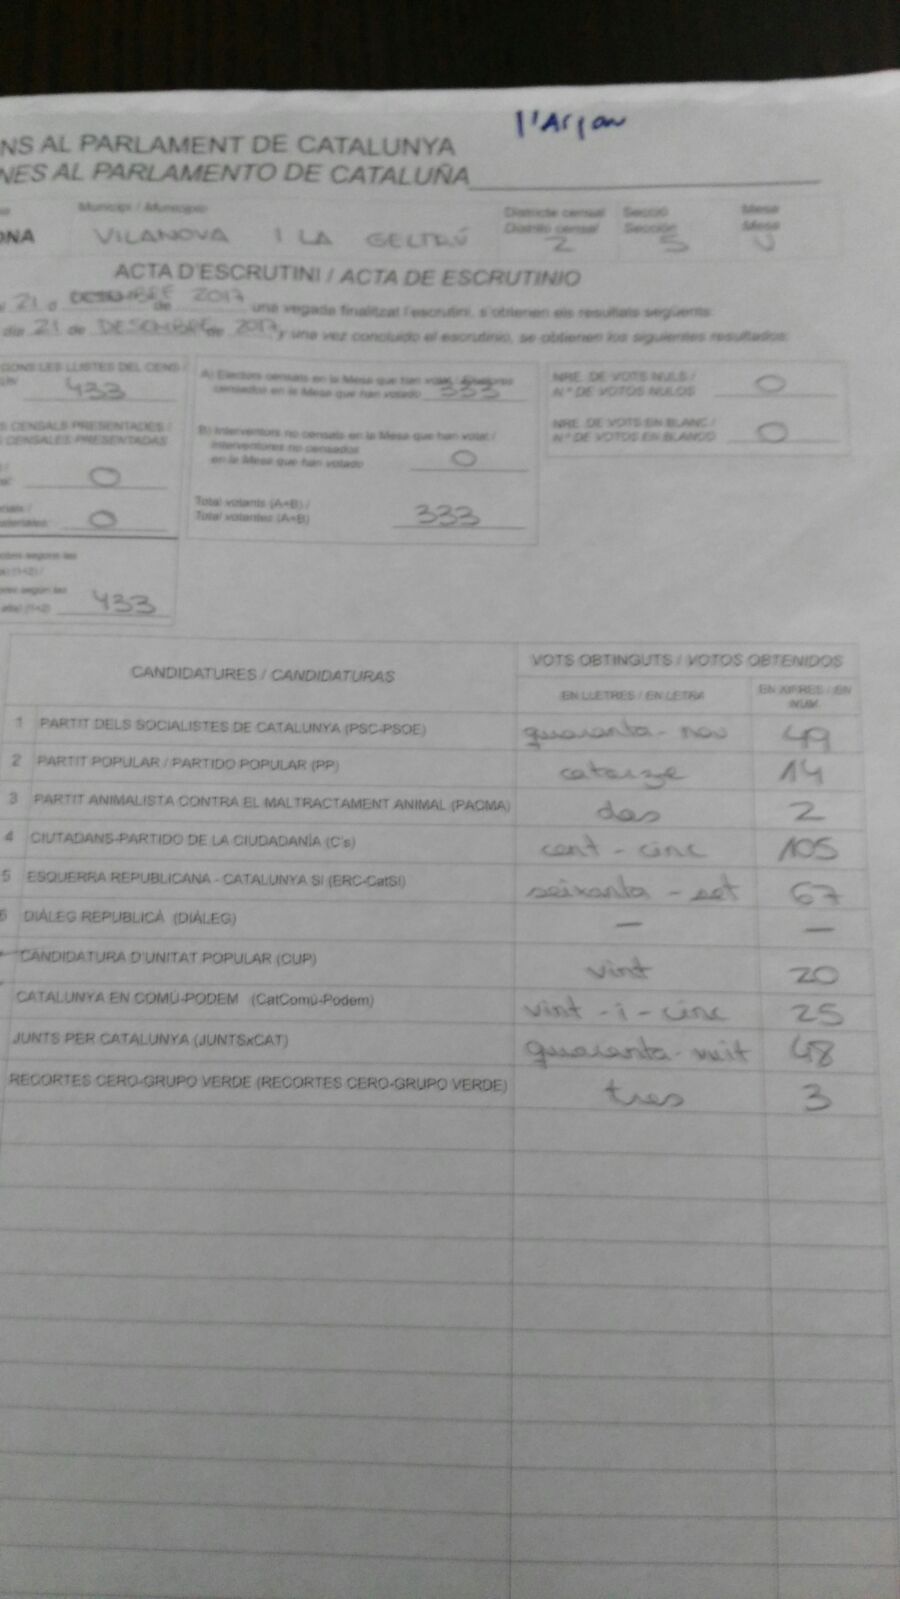 NS AL PARLAMENT DE CATALUNYA
NES AL PARLAMENTO DE CATALUÑA
Municipi / Municipio
Districte censal Secció Mesa
Distrito censal Sección Mesa
ONA VILANOVA I LA GELTRÚ 2 5 U
ACTA D'ESCRUTINI / ACTA DE ESCRUTINIO
21 DESEMBRE de 2017 una vegada finalitzat l'escrutini, s'obtenen els resultats següents:
dia 21 de DESEMBRE de 2017 y una vez concluido el escrutinio, se obtienen los siguientes resultados:
GONS LES LLISTES DEL CENS /
433
S CENSALS PRESENTADES /
CENSALES PRESENTADAS
0
0
433
A) Electors censats en la Mesa que han votat / Electores
censados en la Mesa que han votado 333
B) Interventors no censats en la Mesa que han votat /
Interventores no censados
en la Mesa que han votado 0
Total votants (A+B) /
Total votantes (A+B) 333
NRE. DE VOTS NULS /
N.º DE VOTOS NULOS 0
NRE. DE VOTS EN BLANC /
N.º DE VOTOS EN BLANCO 0
CANDIDATURES / CANDIDATURAS VOTS OBTINGUTS / VOTOS OBTENIDOS
EN LLETRES / EN LETRA EN XIFRES / EN NUM.
1 PARTIT DELS SOCIALISTES DE CATALUNYA (PSC-PSOE) quaranta-nou 49
2 PARTIT POPULAR / PARTIDO POPULAR (PP) catorze 14
3 PARTIT ANIMALISTA CONTRA EL MALTRACTAMENT ANIMAL (PACMA) dos 2
4 CIUTADANS-PARTIDO DE LA CIUDADANÍA (C's) cent-cinc 105
5 ESQUERRA REPUBLICANA - CATALUNYA SÍ (ERC-CatSí) seixanta-set 67
6 DIÀLEG REPUBLICÀ (DIÀLEG) — —
CANDIDATURA D'UNITAT POPULAR (CUP) vint 20
CATALUNYA EN COMÚ-PODEM (CatComú-Podem) vint-i-cinc 25
JUNTS PER CATALUNYA (JUNTSxCAT) quaranta-vuit 48
RECORTES CERO-GRUPO VERDE (RECORTES CERO-GRUPO VERDE) tres 3